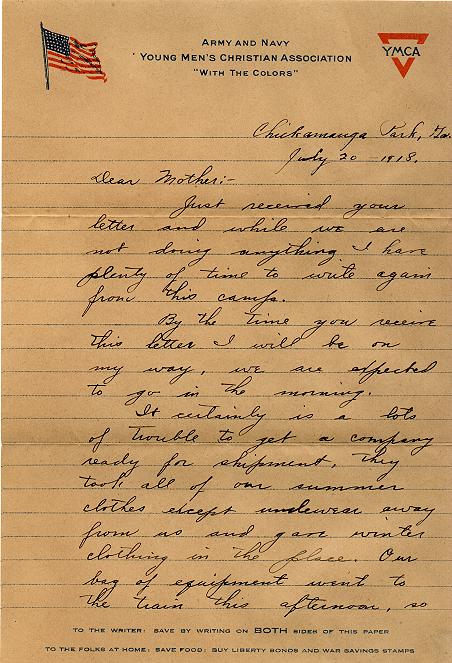 ARMY AND NAVY
YOUNG MEN'S CHRISTIAN ASSOCIATION
"WITH THE COLORS"
YMCA
Chickamauga Park, Ga.
July 20 - 1918.
Dear Mother:-
Just received your
letter and while we are
not doing anything I have
plenty of time to write again
from this camp.
By the time you receive
this letter I will be on
my way, we are expected
to go in the morning.
It certainly is a lots
of trouble to get a company
ready for shipment. They
took all of our summer
clothes except underwear away
from us and gave winter
clothing in the place. Our
bag of equipment went to
the train this afternoon, so
TO THE WRITER: SAVE BY WRITING ON BOTH SIDES OF THIS PAPER
TO THE FOLKS AT HOME: SAVE FOOD: BUY LIBERTY BONDS AND WAR SAVINGS STAMPS